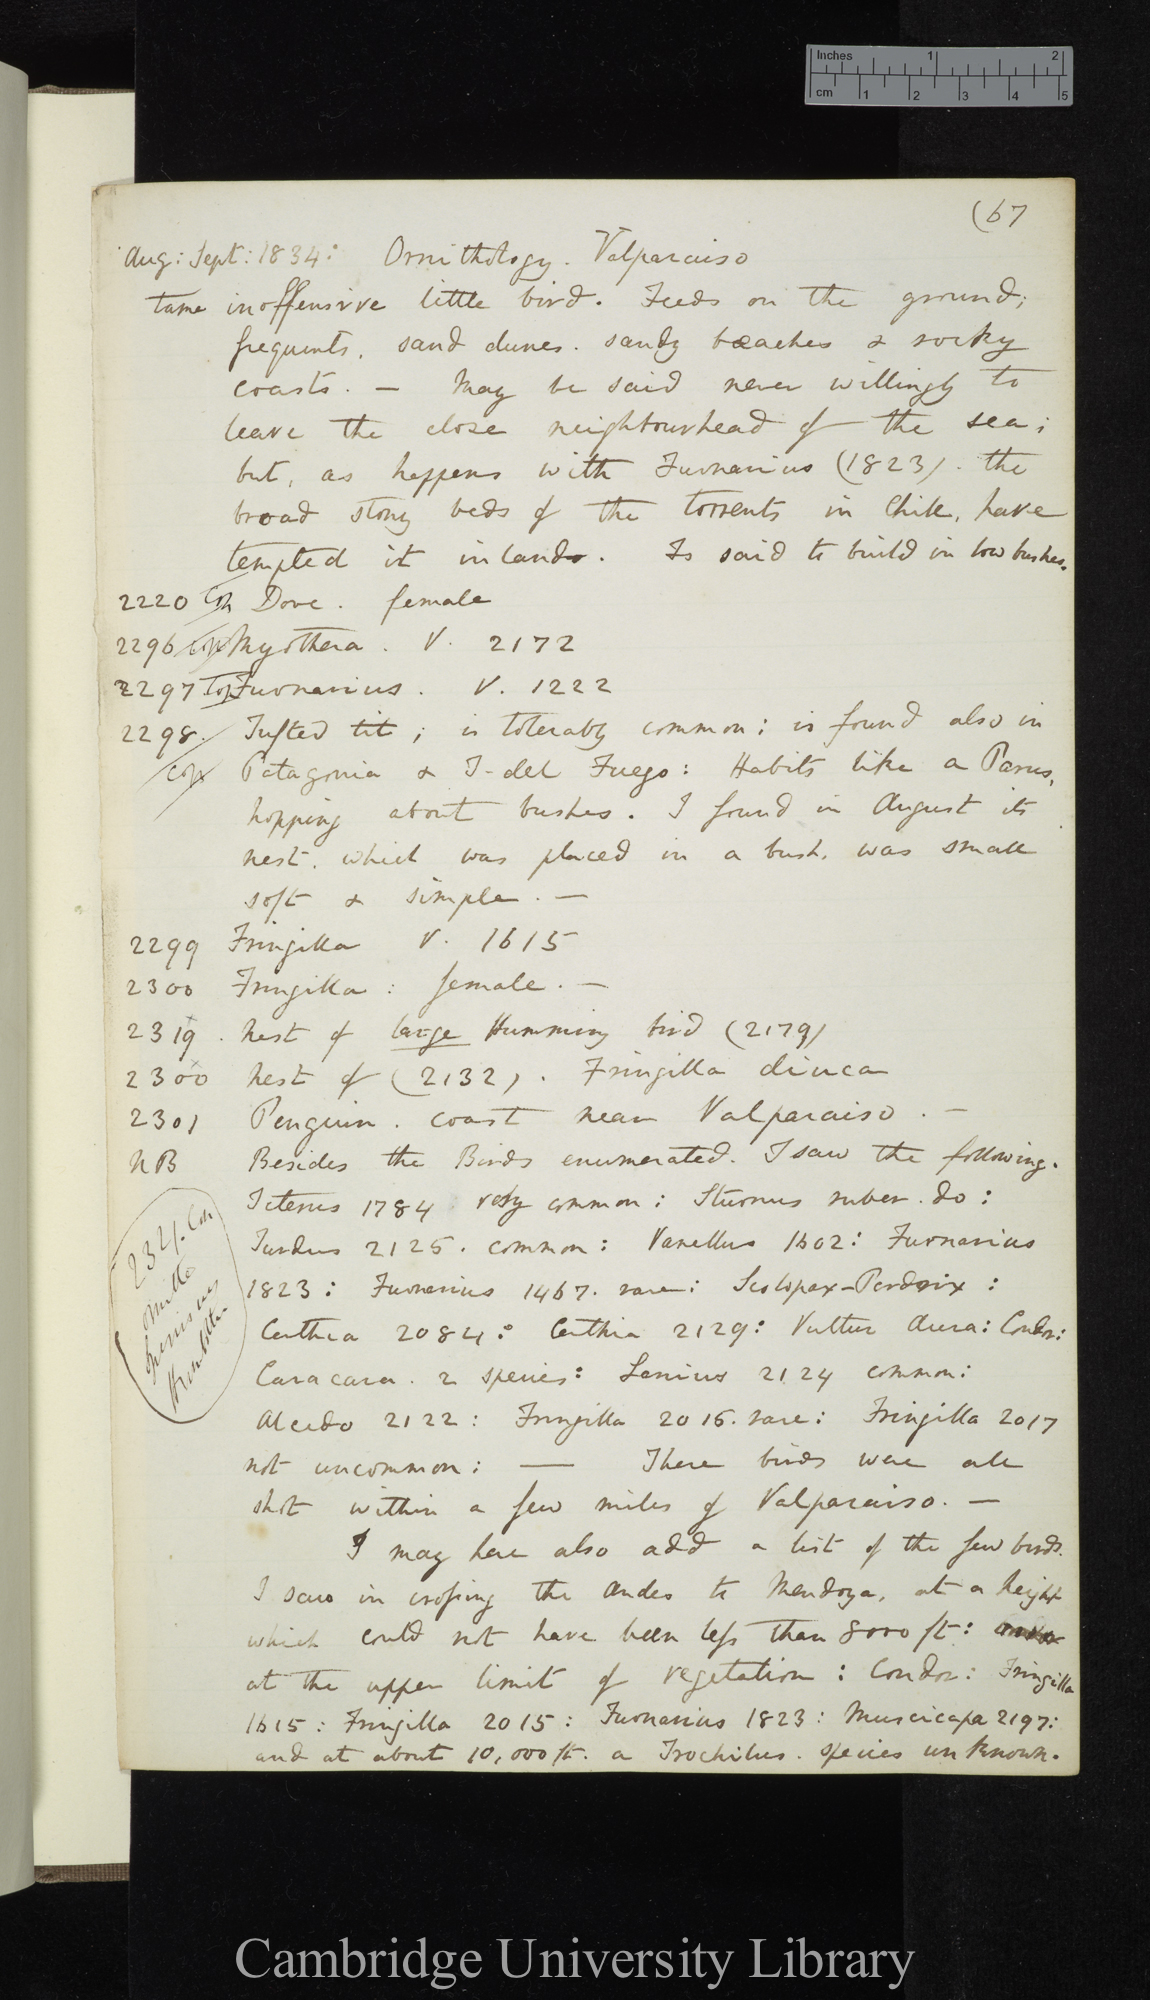 Inches 1 2
cm 1 2 3 4 5
(67
Aug: Sept: 1834: Ornithology. Valparaiso
tame inoffensive little bird. Feeds on the ground;
frequents, sand dunes. sandy beaches & rocky
coasts. — May be said never willingly to
leave the close neighbourhead of the sea;
but, as happens with Furnarius (1823). the
broad stony beds of the torrents in Chile, have
tempted it inland. Is said to build in low bushes.
2220 Cop Dove. female
2296 Cop Myothera. V. 2172
2297 Cop Furnarius. V. 1222
2298. Tufted tit; is tolerably common: is found also in
Cop Patagonia & T. del Fuego: Habits like a Parus,
hopping about bushes. I found in August its
nest, which was placed in a bush, was small
soft & simple. —
2299 Fringilla V. 1615
2300 Fringilla: female. —
2319. Nest of large Humming bird (2179)
2300 Nest of (2132). Fringilla diuca
2301 Penguin. coast near Valparaiso. —
NB Besides the Birds enumerated. I saw the following.
Icterus 1784 very common: Sturnus ruber. do:
Turdus 2125. common: Vanellus 1602: Furnarius
1823: Furnarius 1467. rare: Scolopax-Perdrix:
Certhia 2084: Certhia 2129: Vultur Aura: Condor:
Caracara. 2 species: Lanius 2124 common:
Alcedo 2122: Fringilla 2016. rare: Fringilla 2017
not uncommon: — These birds were all
shot within a few miles of Valparaiso. —
I may here also add a list of the few birds.
I saw in crossing the Andes to Mendoza, at a height
which could not have been less than 8000 ft:
at the upper limit of vegetation: Condor: Fringilla
1615: Fringilla 2015: Furnarius 1823: Muscicapa 2197:
and at about 10,000 ft. a Trochilus. species unknown.
Cop
Cambridge University Library